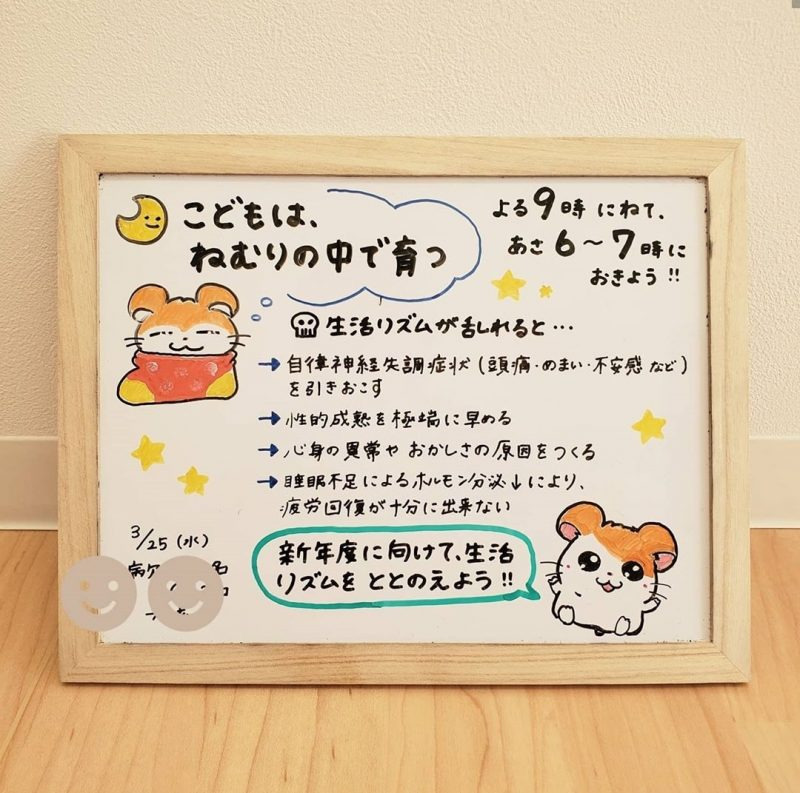 こどもは、
ねむりの中で育つ
よる9時にねて、
あさ6〜7時に
おきよう!!
生活リズムが乱れると…
→自律神経失調症状(頭痛・めまい・不安感など)
を引きおこす
→性的成熟を極端に早める
→心身の異常やおかしさの原因をつくる
→睡眠不足によるホルモン分泌↓により、
疲労回復が十分に出来ない
3/25(水)
新年度に向けて、生活
リズムをととのえよう!!